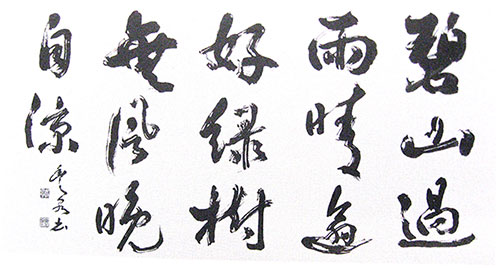 碧山過
雨晴逾
好綠樹
無風晚
自涼